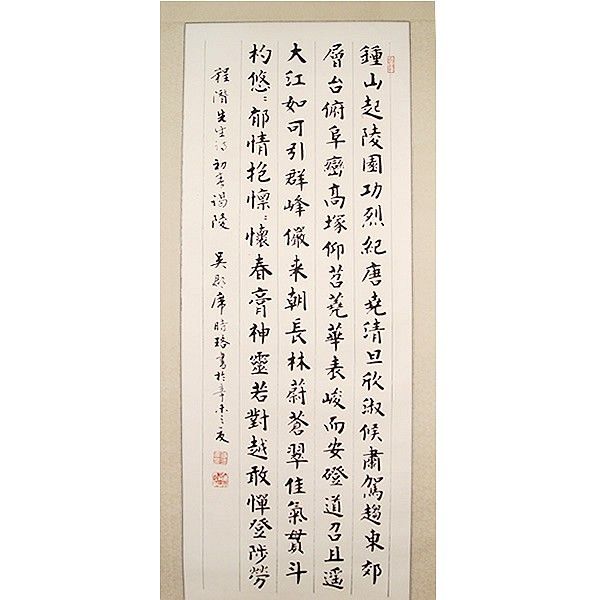 鍾山起陵園功烈紀唐堯清旦欣淑候肅駕趨東郊
層台俯阜巒高塚仰苕蕘華表峻而安磴道召且遥
大江如可引群峰儼来朝長林蔚蒼翠佳氣貫斗
杓悠〻郁情抱懍〻懷春膏神靈若對越敢憚登陟勞
程潛先生诗初春謁陵 吴縣席時珞書於辛未之夏